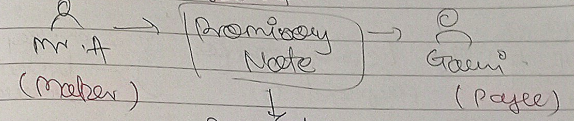 Promissory
Mr. A
Note
Gauri
(Maker)
(Payee)